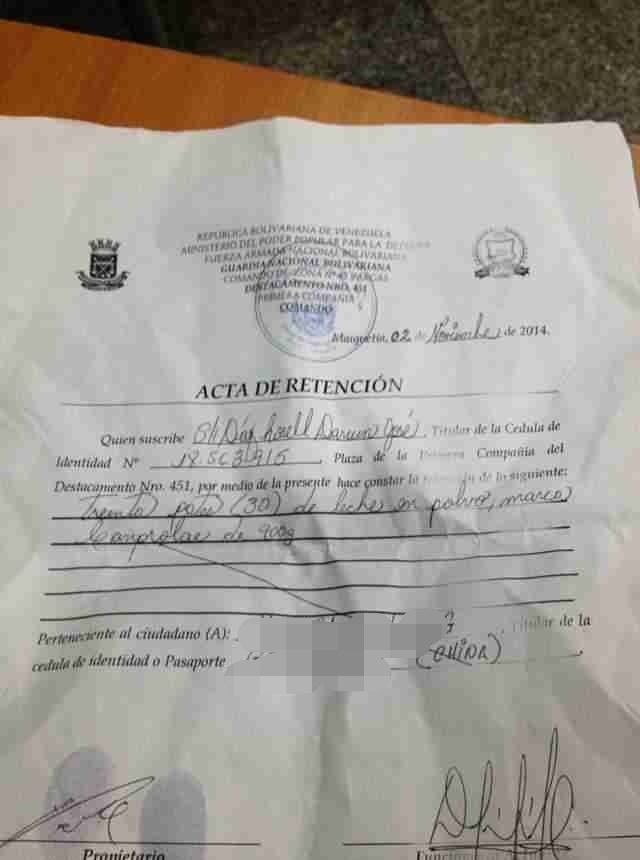 REPÚBLICA BOLIVARIANA DE VENEZUELA
MINISTERIO DEL PODER POPULAR PARA LA DEFENSA
FUERZA ARMADA NACIONAL BOLIVARIANA
GUARDIA NACIONAL BOLIVARIANA
COMANDO DE ZONA Nº 45 VARGAS
DESTACAMENTO NRO. 451
PRIMERA COMPAÑIA
COMANDO
Maiquetía, 02 de Noviembre de 2014.
ACTA DE RETENCIÓN
Quien suscribe Díaz Darwin José, Titular de la Cedula de
Identidad Nº Plaza de la Primera Compañía del
Destacamento Nro. 451, por medio de la presente hace constar la retención de lo siguiente:
treinta potes (30) de leche en polvo, marca
de 900g
Perteneciente al ciudadano (A): , Titular de la
cedula de identidad o Pasaporte (CHINA)
Propietario